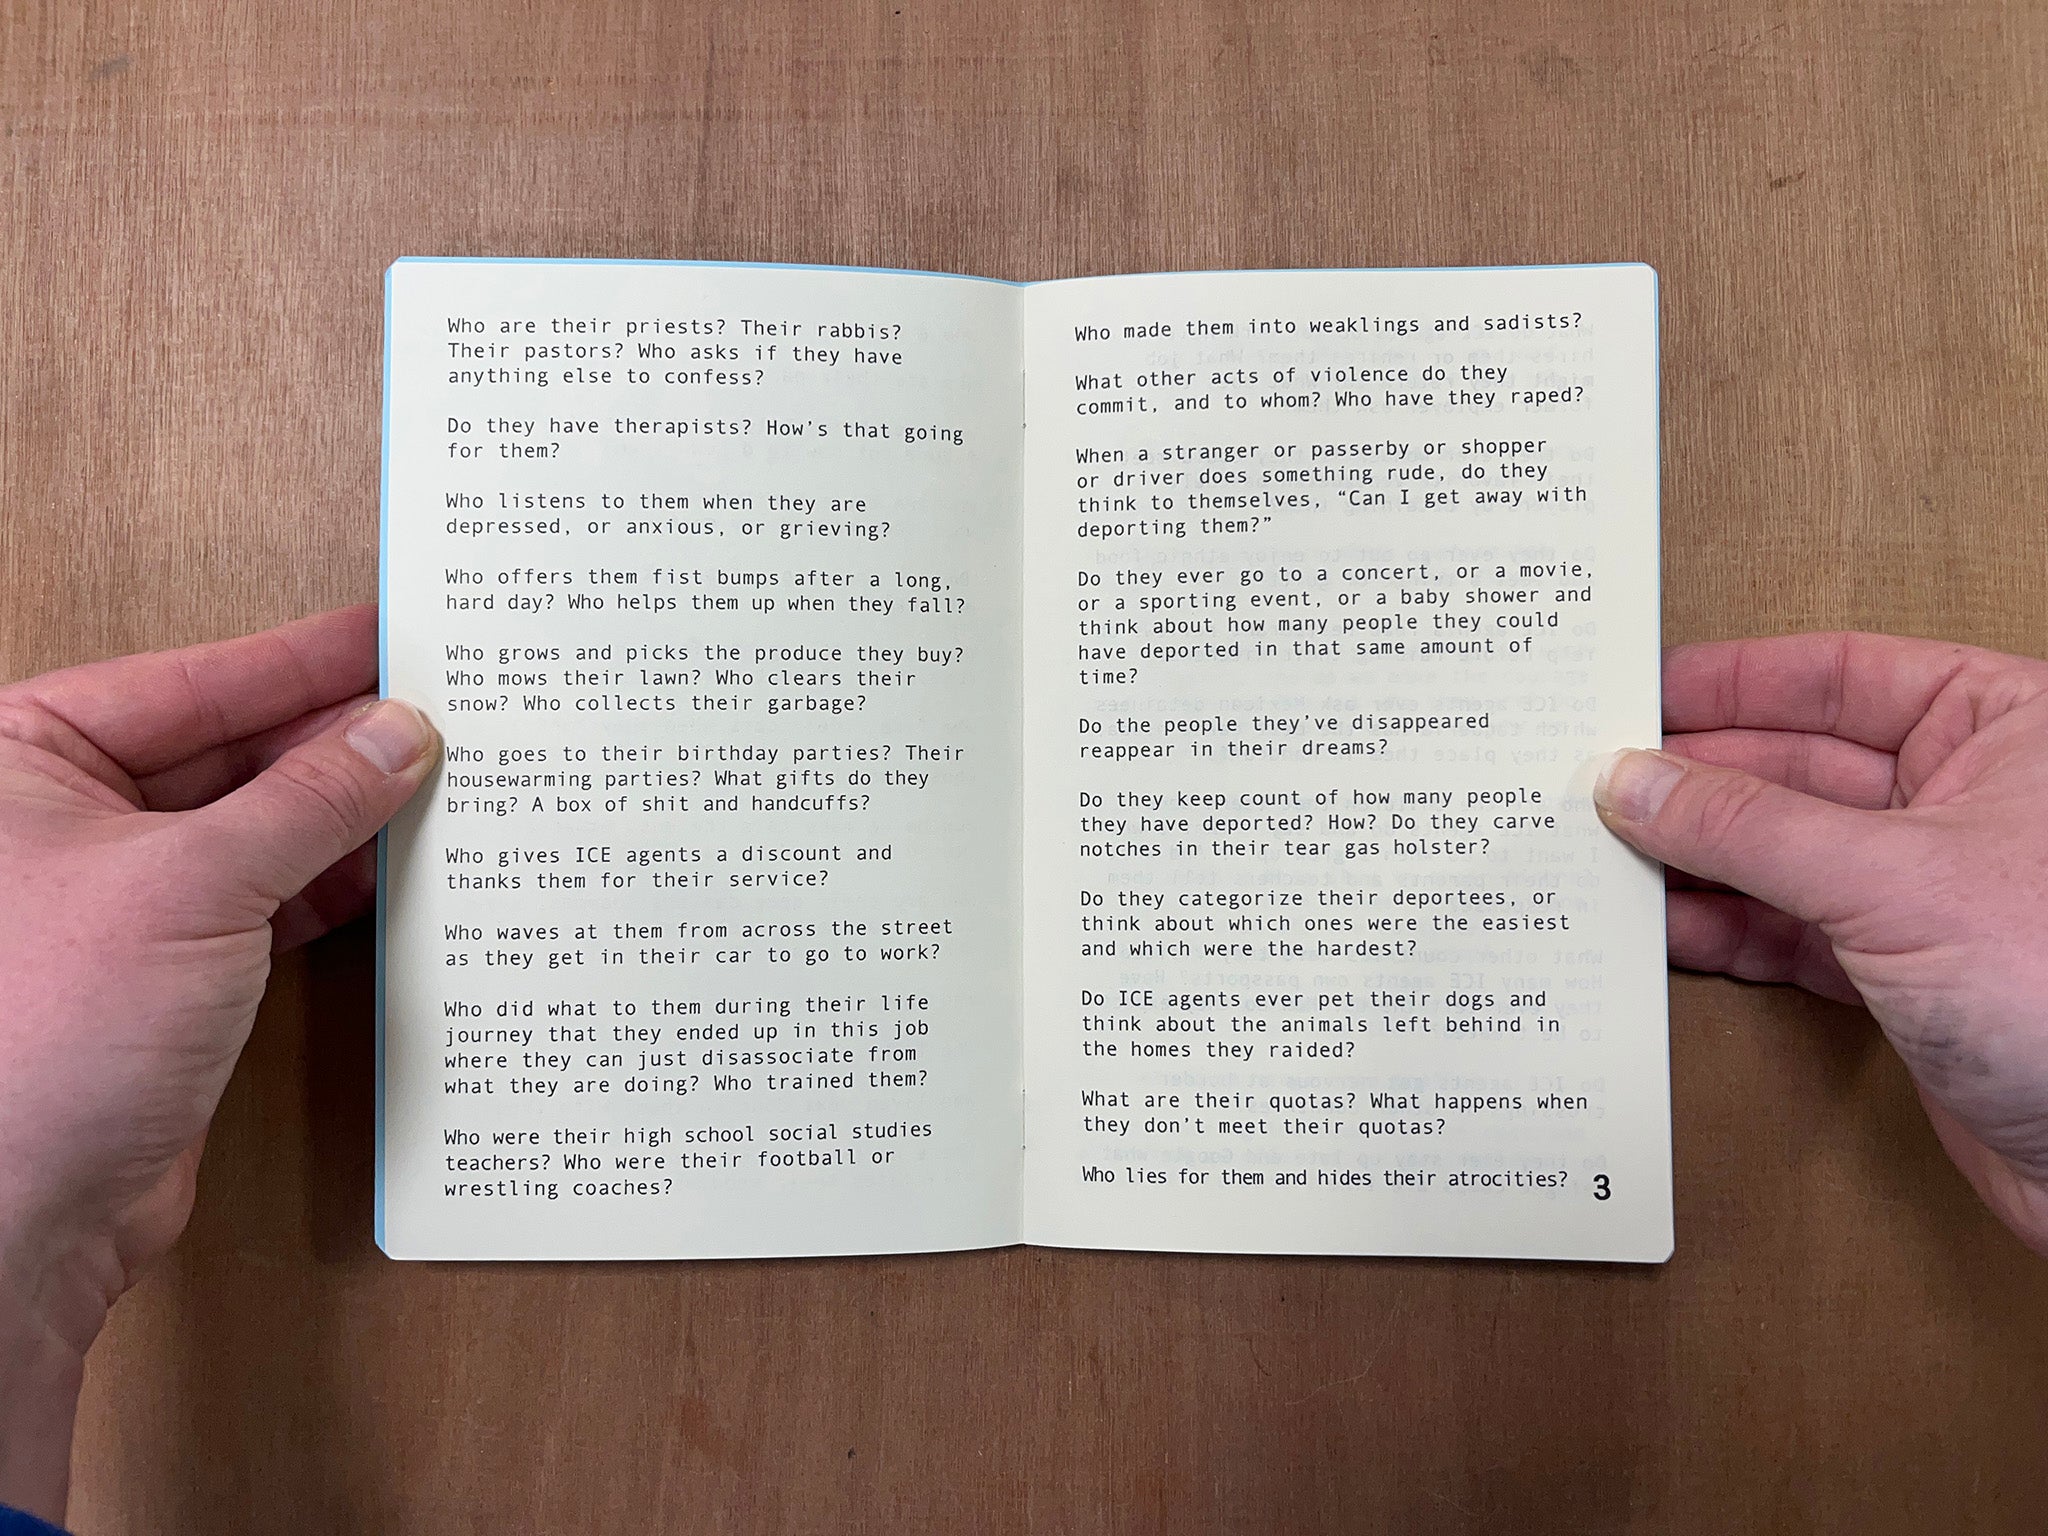 Who are their priests? Their rabbis?
Their pastors? Who asks if they have
anything else to confess?
Do they have therapists? How’s that going
for them?
Who listens to them when they are
depressed, or anxious, or grieving?
Who offers them fist bumps after a long,
hard day? Who helps them up when they fall?
Who grows and picks the produce they buy?
Who mows their lawn? Who clears their
snow? Who collects their garbage?
Who goes to their birthday parties? Their
housewarming parties? What gifts do they
bring? A box of shit and handcuffs?
Who gives ICE agents a discount and
thanks them for their service?
Who waves at them from across the street
as they get in their car to go to work?
Who did what to them during their life
journey that they ended up in this job
where they can just disassociate from
what they are doing? Who trained them?
Who were their high school social studies
teachers? Who were their football or
wrestling coaches?
Who made them into weaklings and sadists?
What other acts of violence do they
commit, and to whom? Who have they raped?
When a stranger or passerby or shopper
or driver does something rude, do they
think to themselves, “Can I get away with
deporting them?”
Do they ever go to a concert, or a movie,
or a sporting event, or a baby shower and
think about how many people they could
have deported in that same amount of
time?
Do the people they’ve disappeared
reappear in their dreams?
Do they keep count of how many people
they have deported? How? Do they carve
notches in their tear gas holster?
Do they categorize their deportees, or
think about which ones were the easiest
and which were the hardest?
Do ICE agents ever pet their dogs and
think about the animals left behind in
the homes they raided?
What are their quotas? What happens when
they don’t meet their quotas?
Who lies for them and hides their atrocities?
3